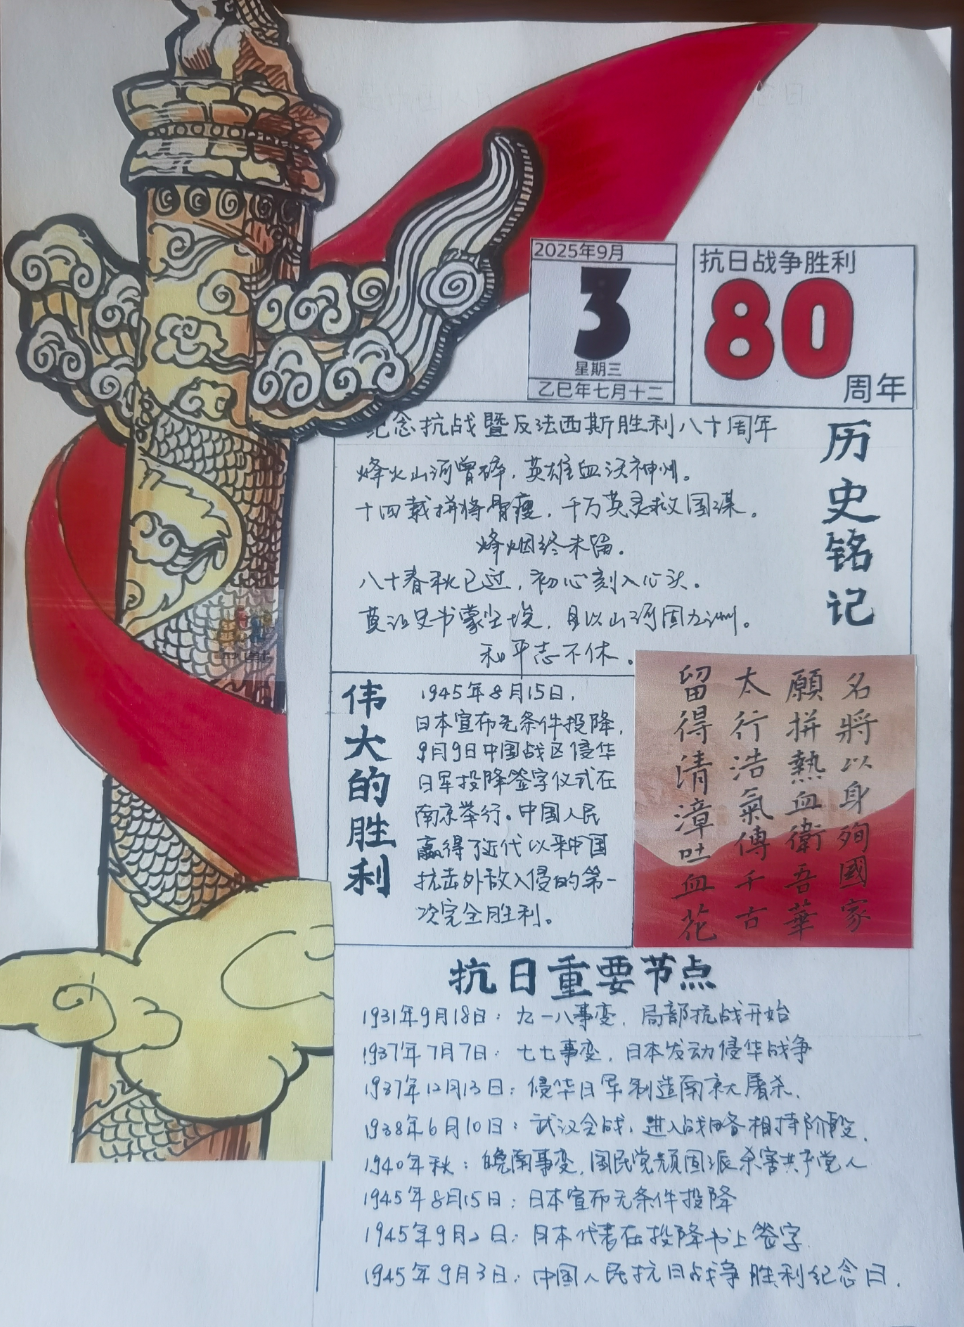 2025年9月
3
星期三
乙巳年七月十二
抗日战争胜利
80
周年
纪念抗战暨反法西斯胜利八十周年
烽火山河曾碎，英雄血沃神州。
十四载拼将骨瘦，千万英灵救国谋。
烽烟终未留。
八十春秋已过，初心刻入心头。
莫让史书蒙尘埃，且以山河固九洲。
和平志不休。
历史铭记
伟大的胜利
1945年8月15日，
日本宣布无条件投降，
9月9日中国战区侵华
日军投降签字仪式在
南京举行。中国人民
赢得了近代以来中国
抗击外敌入侵的第一
次完全胜利。
名將以身殉國家
願拼熱血衛吾華
太行浩氣傳千古
留得清漳吐血花
抗日重要节点
1931年9月18日：九一八事变，局部抗战开始
1937年7月7日：七七事变，日本发动侵华战争
1937年12月13日：侵华日军制造南京大屠杀，
1938年6月10日：武汉会战，进入战略相持阶段，
1940年秋：皖南事变，国民党顽固派杀害共产党人
1945年8月15日：日本宣布无条件投降
1945年9月2日：日本代表在投降书上签字
1945年9月3日：中国人民抗日战争胜利纪念日．